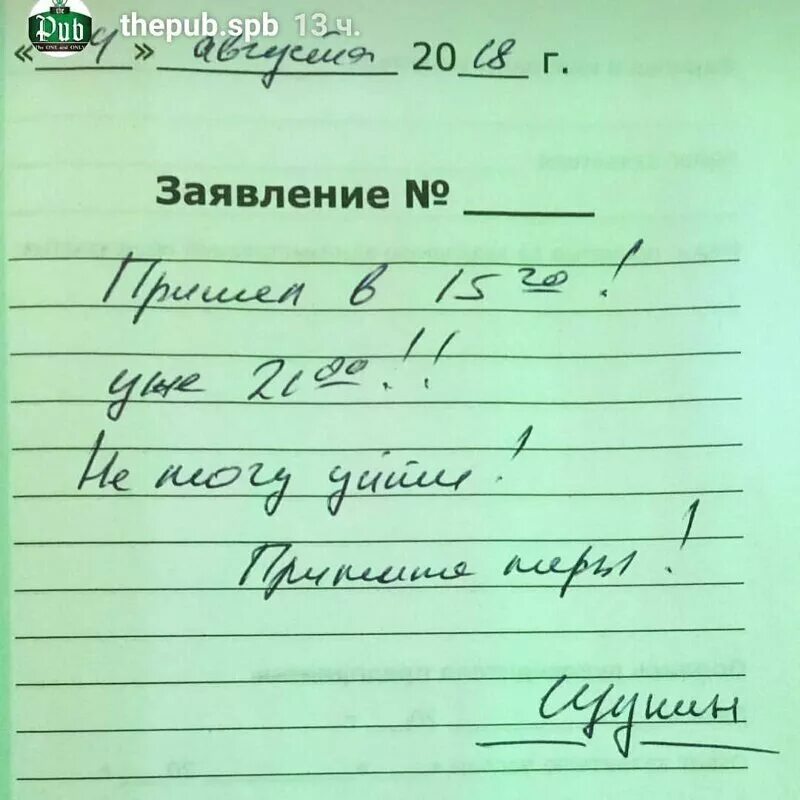 the Pub
The ONE and ONLY
thepub.spb 13 ч.
«4» августа 2018 г.
Заявление № ______
Пришел в 15 20!
уже 21 00!!!
Не могу уйти!
Примите меры!
Щукин